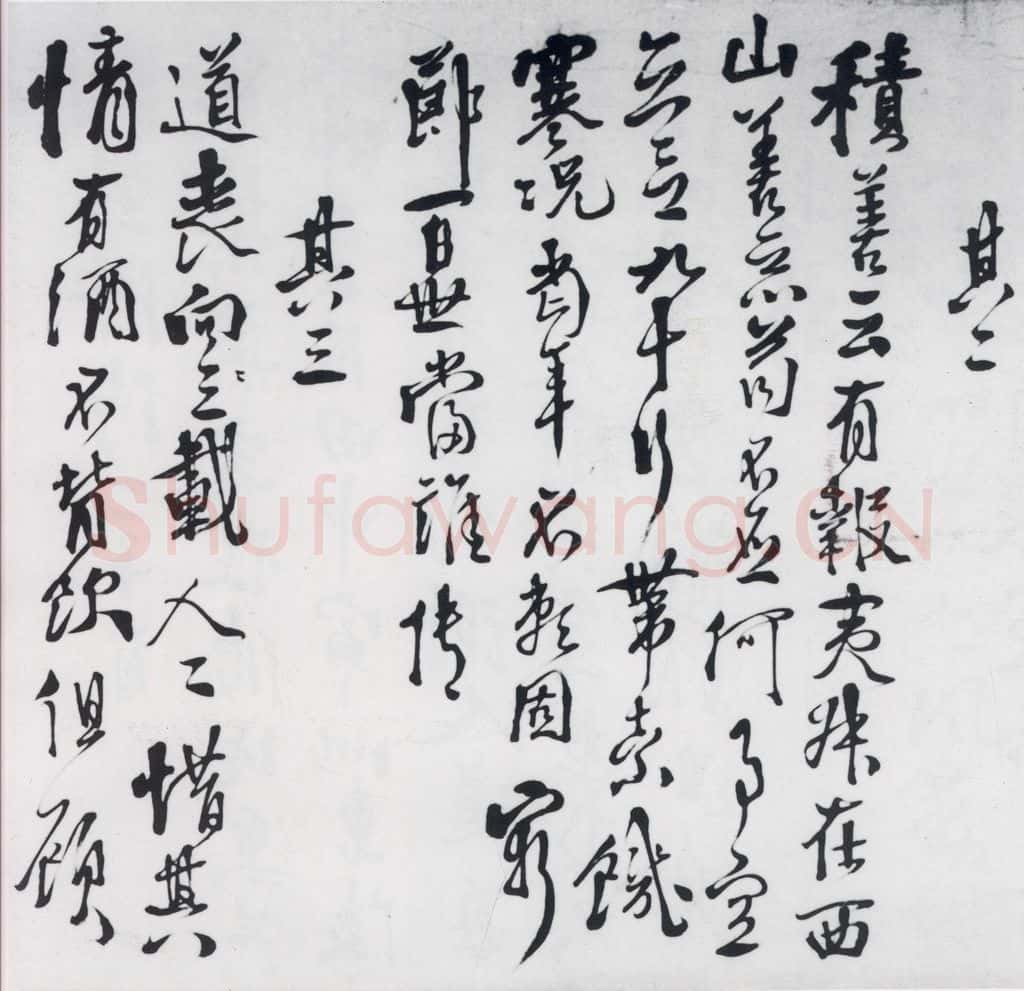 其二
積善云有報夷叔在西
山善惡苟不應何事空
立言九十行帶索饑
寒況當年不賴固窮
節百世當誰傳
其三
道喪向三載人〻惜其
情有酒不肯飲但顧
Shufawang.CN